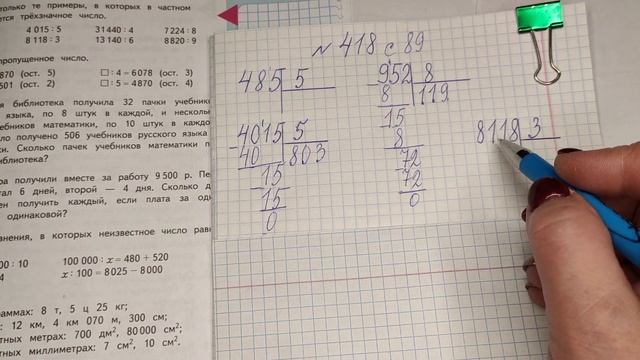 только те примеры, в которых в частном
ется трёхзначное число.
4 015 : 5 31 440 : 4 7 224 : 8
8 118 : 3 13 140 : 6 8 820 : 9
пропущенное число.
870 (ост. 5) □ : 4 = 6 078 (ост. 3)
501 (ост. 2) □ : 5 = 4 870 (ост. 4)
я библиотека получила 32 пачки учебников
языка, по 8 штук в каждой, и несколь
ебников математики, по 10 штук в каждо
ло получено 506 учебников русского языка
ки. Сколько пачек учебников математики по
иблиотека?
ра получили вместе за работу 9 500 р. Пер
тал 6 дней, второй — 4 дня. Сколько д
ен получить каждый, если плата за од
одинаковой?
внения, в которых неизвестное число равн
00 : 10 100 000 : x = 480 + 520
4 x : 100 = 8 025 − 8 000
раммах: 8 т, 5 ц 25 кг;
: 12 км, 4 км 070 м, 300 см;
тных метрах: 700 дм², 80 000 см²;
тных миллиметрах: 7 см², 10 см².
N 418 с 89
485 5
952 8
8 119
15
8
72
72
0
4015 5
40 803
15
15
0
8118 3